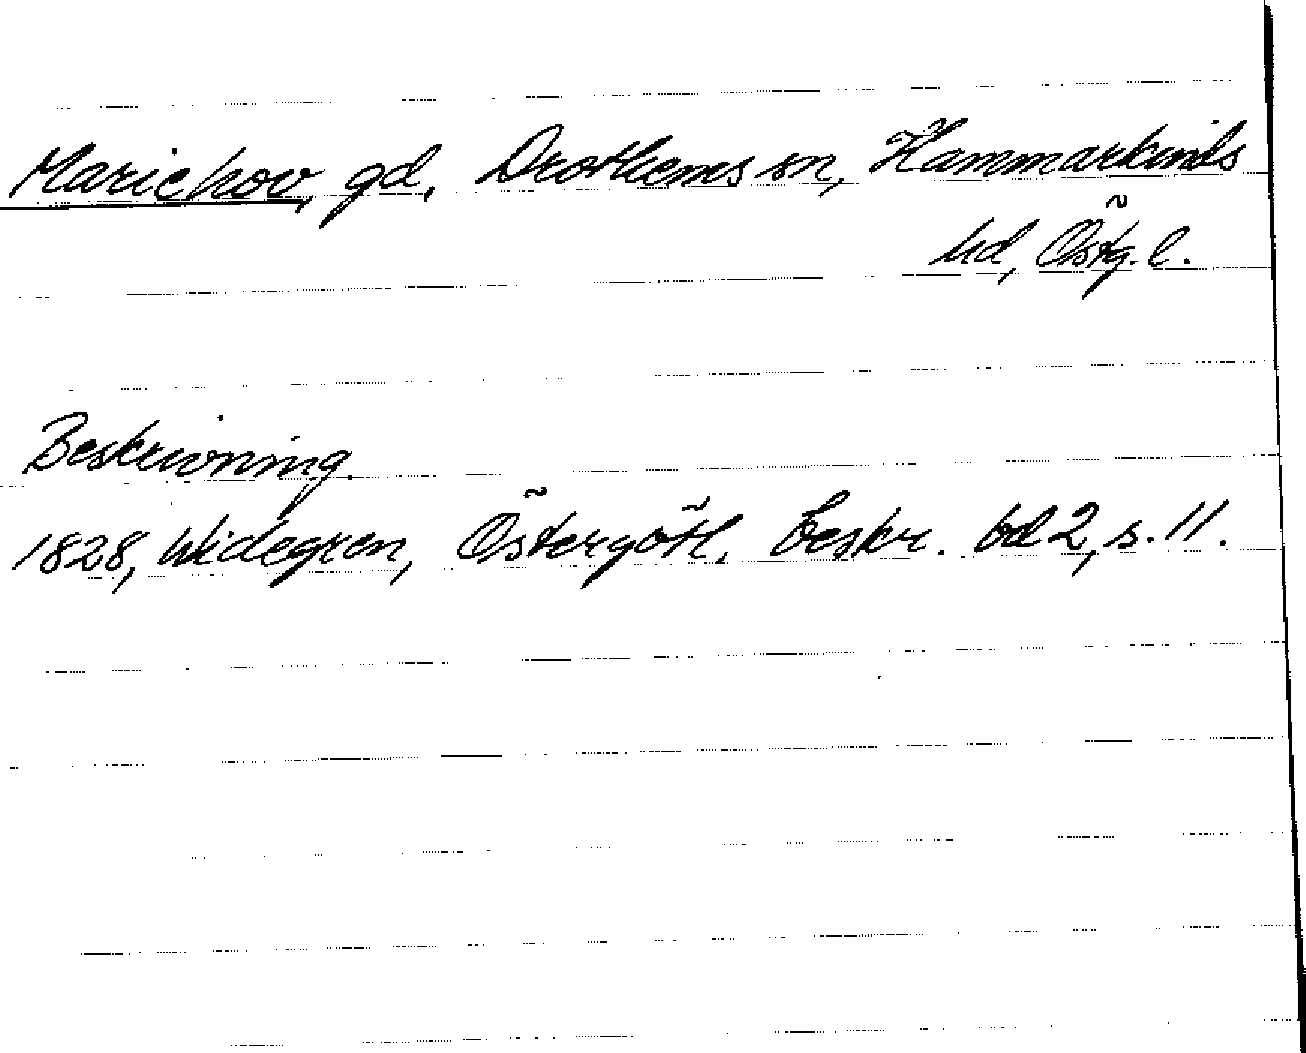 Mariehov, gd, Drothems sn, Hammarkinds
hd, Östg. l.
Beskrivning.
1828, Widegren, Östergötl. beskr. bd 2, s. 11.